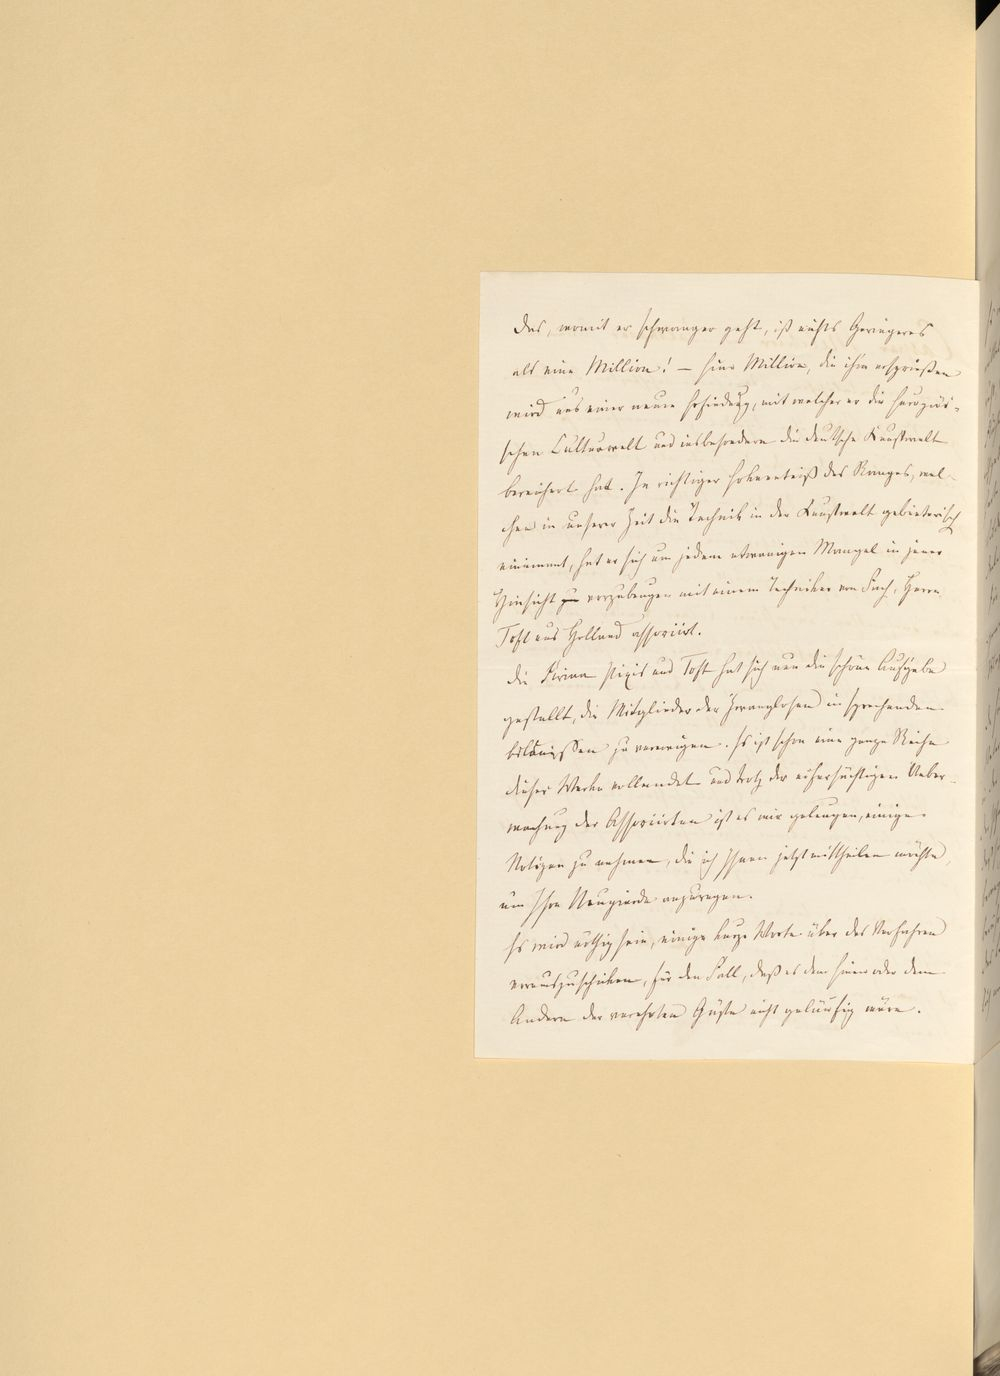 das, womit er schwanger geht, ist nichts Geringeres
als eine Million! – Eine Million, die ihm ersprießen
wird aus einer neuen Erfindung, mit welcher er die Europäi-
schen Culturwelt und insbesondere die deutsche Kunstwelt
bereichert hat. In richtiger Erkenntniß des Ranges, wel-
chen in unserer Zeit die Technik in der Kunstwelt gebieterisch
einnimmt, hat er sich um jedem etwanigen Mangel in jener
Hinsicht zu vorzubeugen mit einem Techniker von Fach, Herrn
Toft aus Holland associirt.
Die Firma Pixis und Toft hat sich nun die schöne Aufgabe
gestellt, die Mitglieder der Zwanglosen in sprechenden
Bildnissen zu verewigen. Es ist schon eine ganze Reihe
dieser Werke vollendet und trotz der eifersüchtigen Ueber-
wachung der Associirten ist es mir gelungen, einige
Notizen zu nehmen, die ich Ihnen jetzt mittheilen möchte,
um Ihre Neugierde anzuregen.
Es wird nöthig sein, einige kurze Worte über das Verfahren
vorauszuschicken, für den Fall, daß es dem Einen oder dem
Andern der verehrten Gäste nicht geläufig wäre.